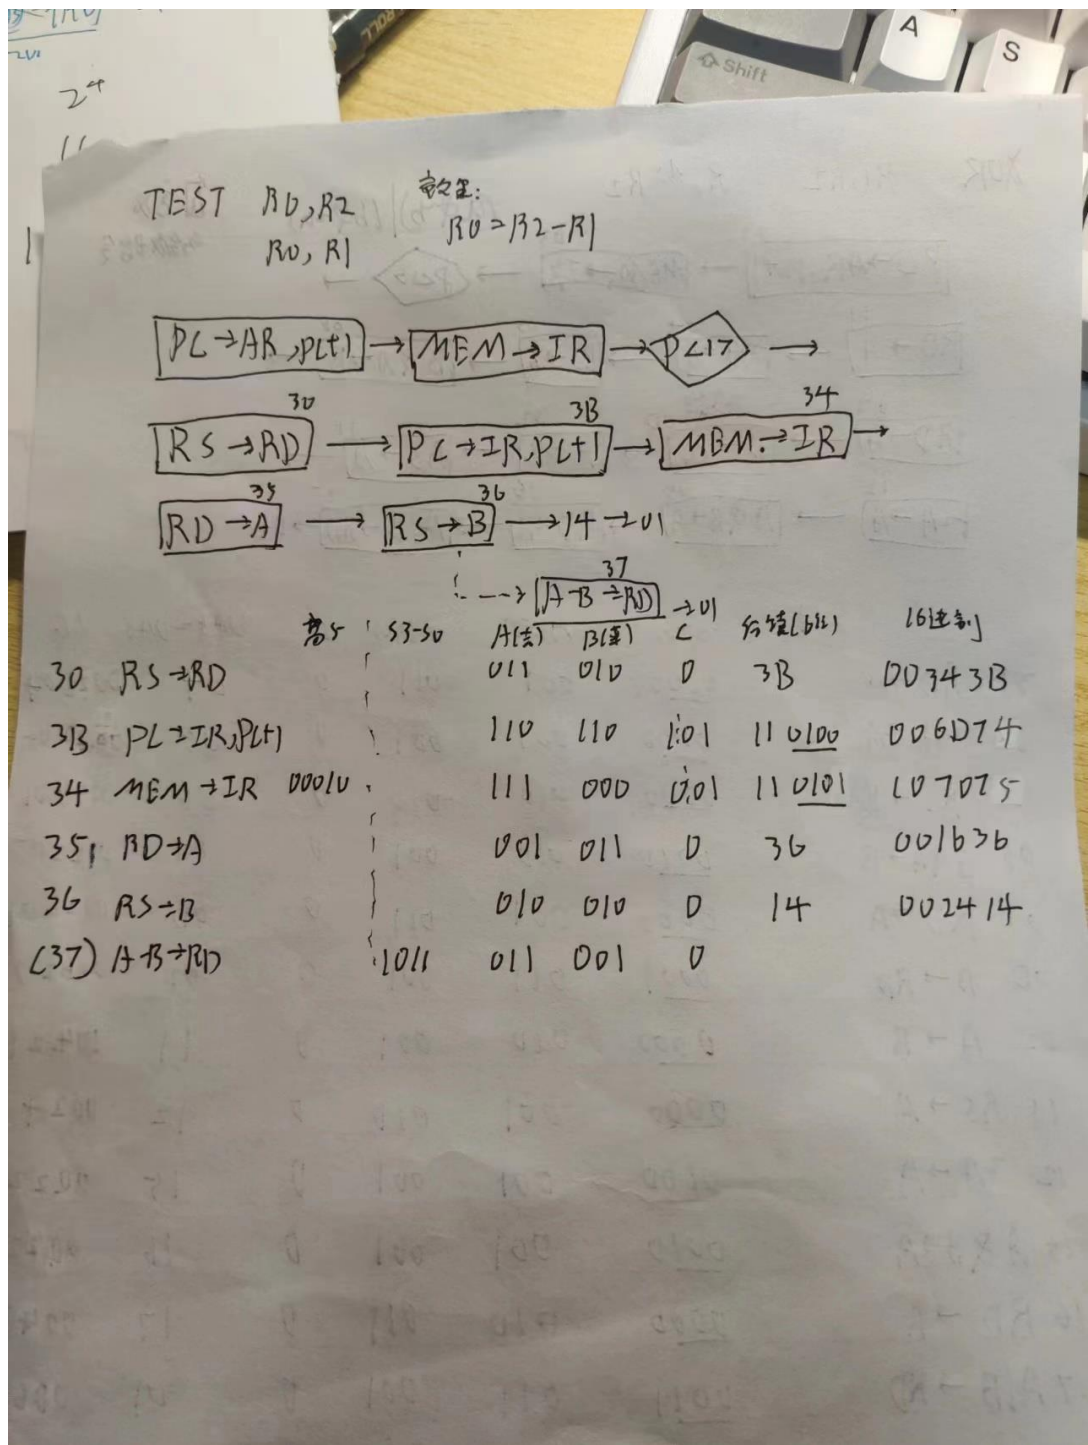 ROLL
A
S
Shift
2⁴
TEST R0,R2
R0,R1
R0=R2-R1
PC→AR,PC+1 → MEM→IR → P<1> →
30 3B 34
RS→RD → PC→IR,PC+1 → MEM→IR →
35 36
RD→A → RS→B → 14 → 01
37
A-B→RD → 01
S3-S0 A(去) B(来) C 16进制
30 RS→RD 011 010 0 3B 00343B
3B PC→IR,PC+1 110 110 1:01 110100 006D74
34 MEM→IR 00010 111 000 0:01 110101 107075
35 RD→A 001 011 0 36 001636
36 RS→B 010 010 0 14 002414
(37) A-B→RD 1011 011 001 0